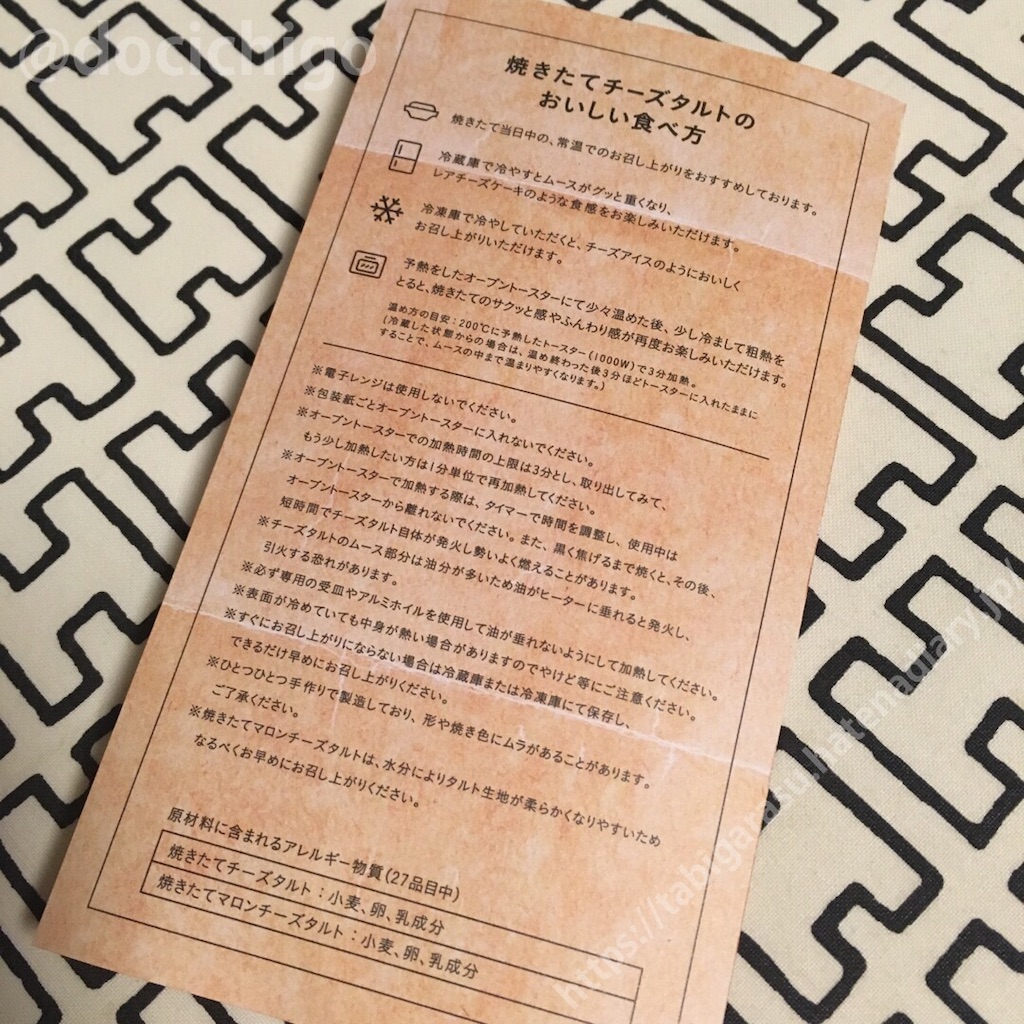 @docichigo
焼きたてチーズタルトの
おいしい食べ方
焼きたて当日中の、常温でのお召し上がりをおすすめしております。
冷蔵庫で冷やすとムースがグッと重くなり、
レアチーズケーキのような食感をお楽しみいただけます。
冷凍庫で冷やしていただくと、チーズアイスのようにおいしく
お召し上がりいただけます。
予熱をしたオーブントースターにて少々温めた後、少し冷まして粗熱を
とると、焼きたてのサクッと感やふんわり感が再度お楽しみいただけます。
温め方の目安：200℃に予熱したトースター(1000W)で3分加熱。
(冷蔵した状態からの場合は、温め終わった後3分ほどトースターに入れたままに
することで、ムースの中まで温まりやすくなります。)
※電子レンジは使用しないでください。
※包装紙ごとオーブントースターに入れないでください。
※オーブントースターでの加熱時間の上限は3分とし、取り出してみて、
もう少し加熱したい方は1分単位で再加熱してください。
※オーブントースターで加熱する際は、タイマーで時間を調整し、使用中は
オーブントースターから離れないでください。また、黒く焦げるまで焼くと、その後、
短時間でチーズタルト自体が発火し勢いよく燃えることがあります。
※チーズタルトのムース部分は油分が多いため油がヒーターに垂れると発火し、
引火する恐れがあります。
※必ず専用の受皿やアルミホイルを使用して油が垂れないようにして加熱してください。
※表面が冷めていても中身が熱い場合がありますのでやけど等にご注意ください。
※すぐにお召し上がりにならない場合は冷蔵庫または冷凍庫にて保存し、
できるだけ早めにお召し上がりください。
※ひとつひとつ手作りで製造しており、形や焼き色にムラがあることがあります。
ご了承ください。
※焼きたてマロンチーズタルトは、水分によりタルト生地が柔らかくなりやすいため
なるべくお早めにお召し上がりください。
原材料に含まれるアレルギー物質(27品目中)
焼きたてチーズタルト：小麦、卵、乳成分
焼きたてマロンチーズタルト：小麦、卵、乳成分
https://tabigarasu.hatenadiary.jp/